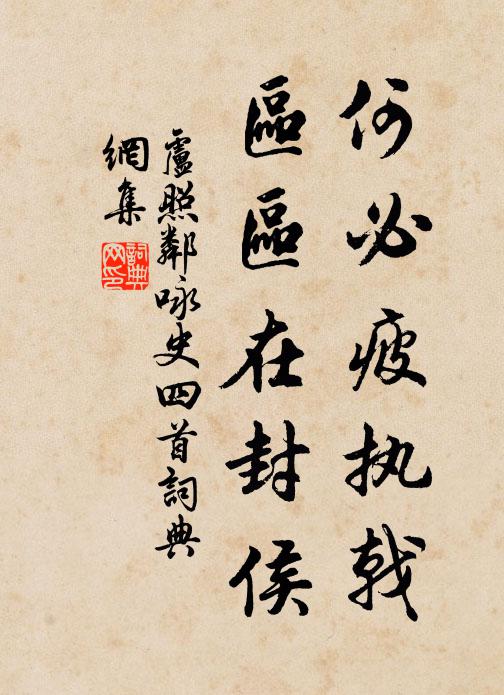 何必疲执戟
區區在封侯
盧照鄰咏史四首詞典
網集
詞典
网印